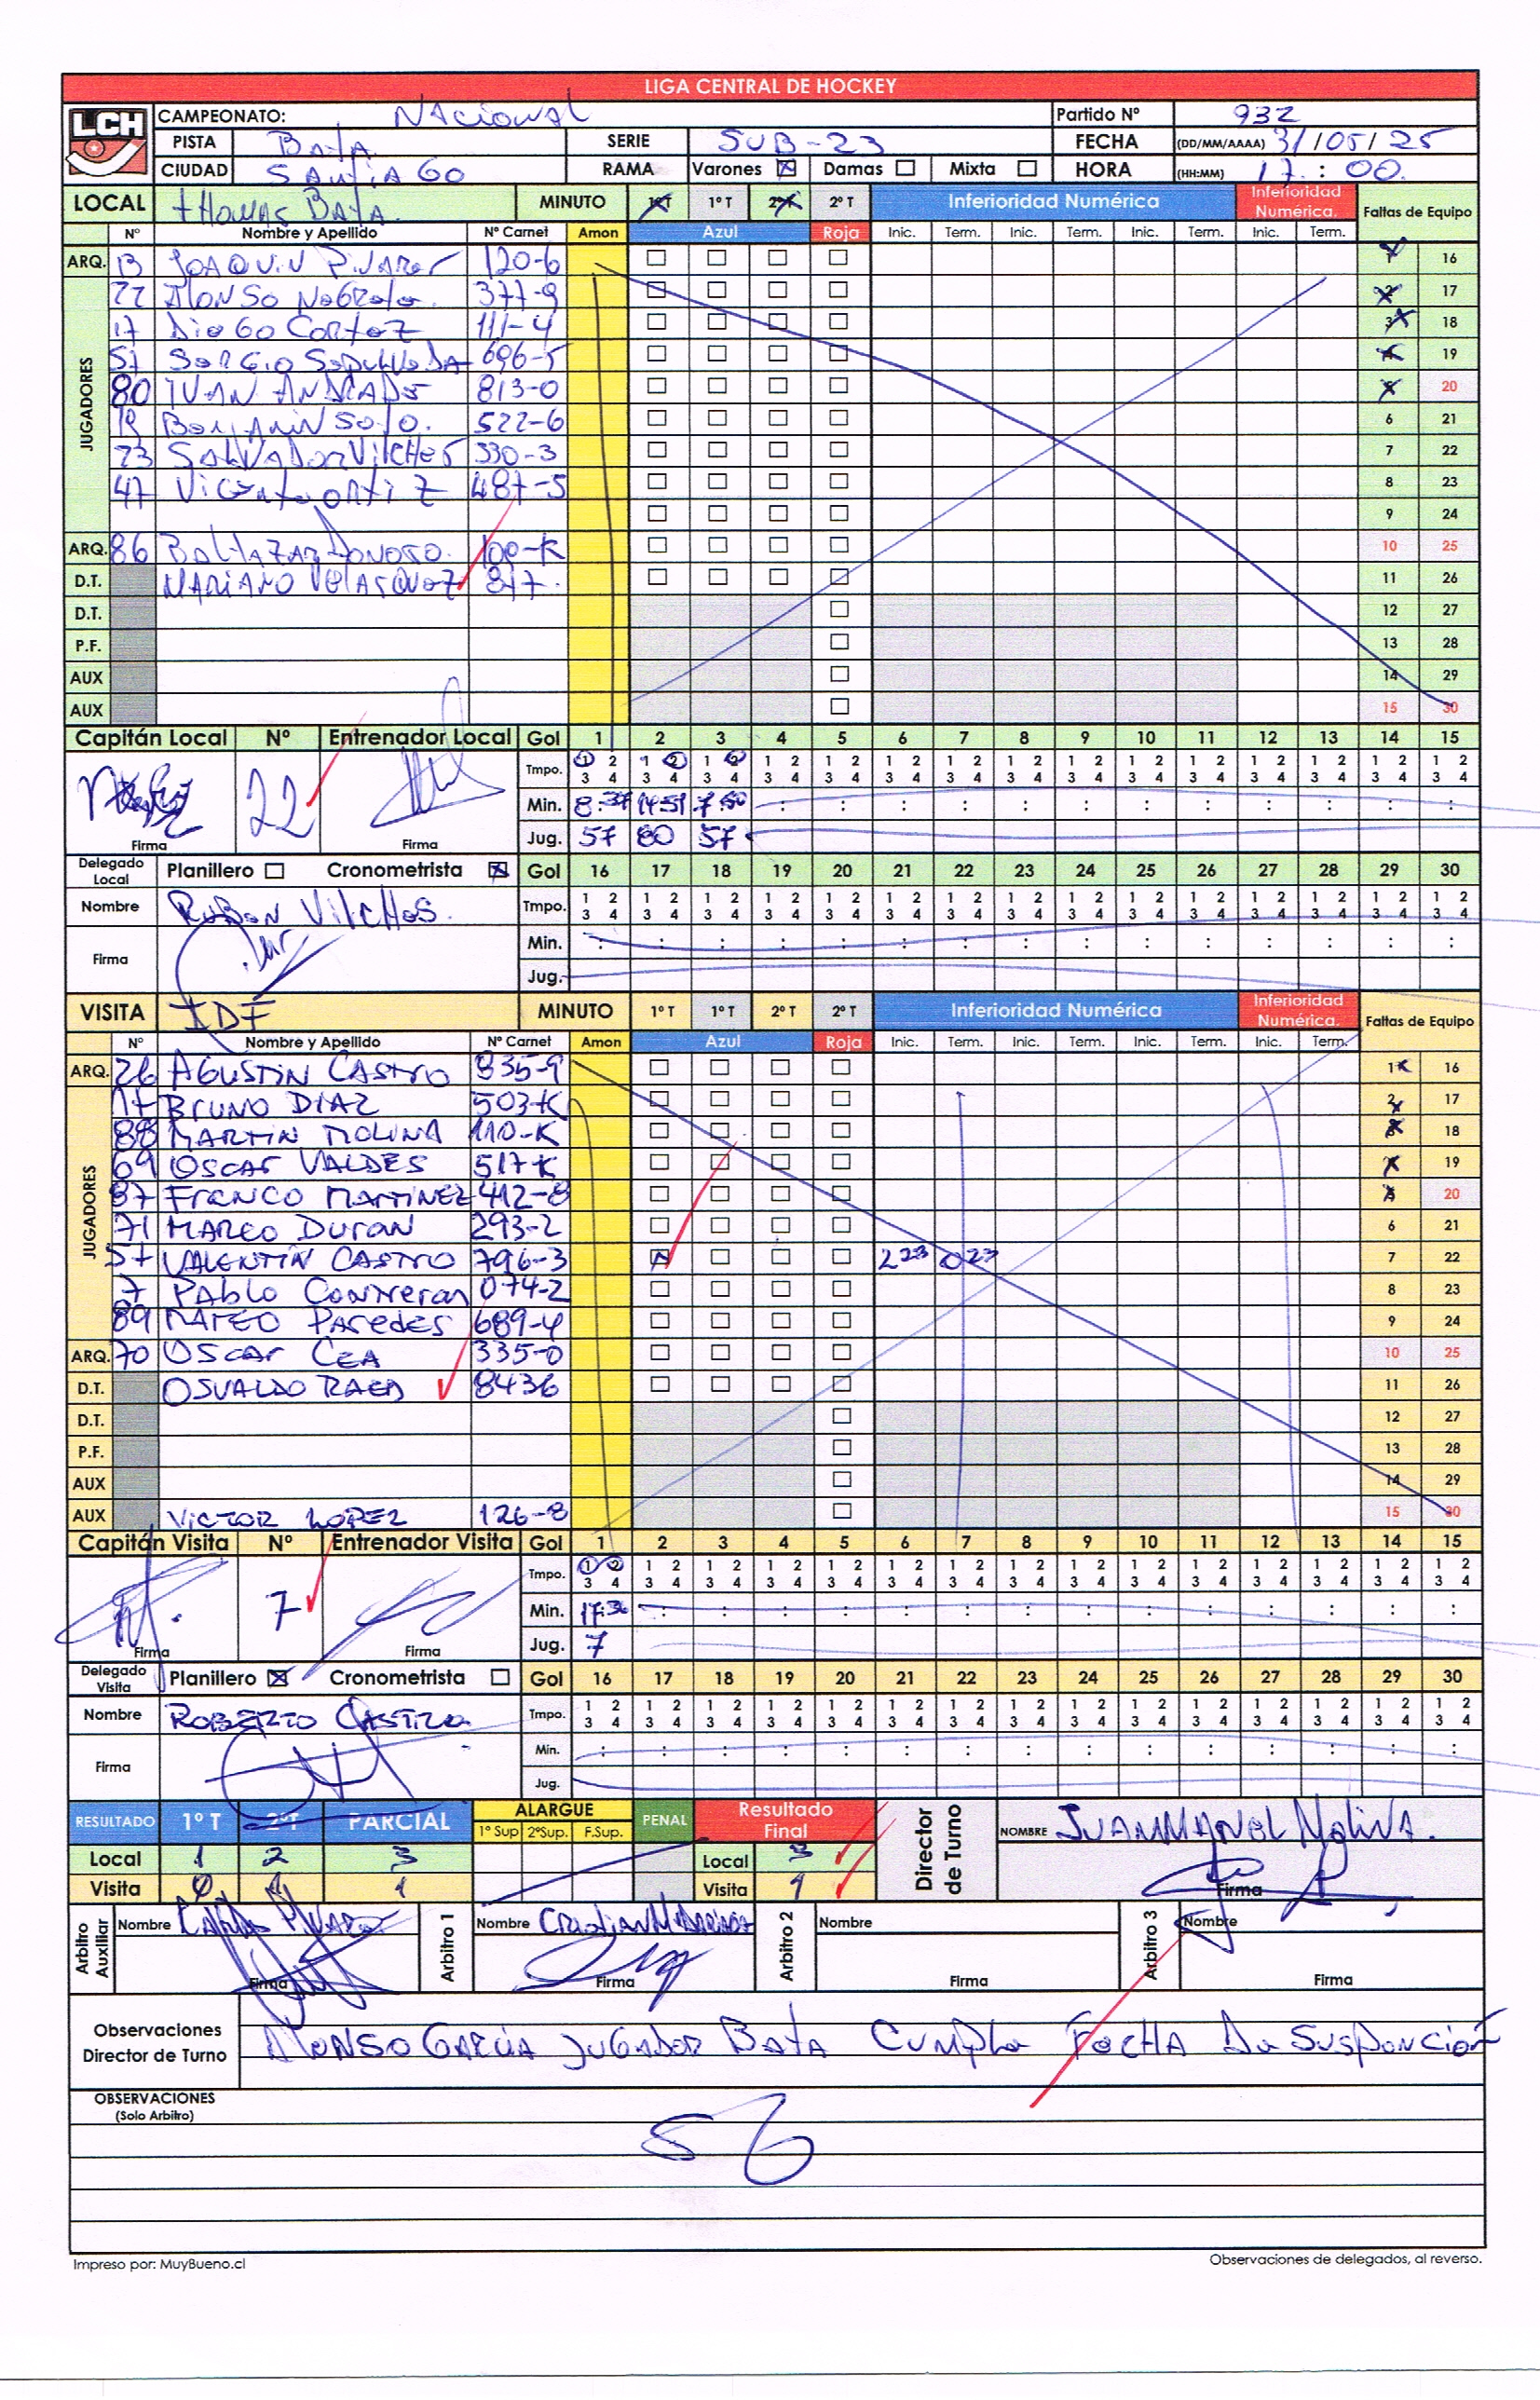 LIGA CENTRAL DE HOCKEY
LCH
CAMPEONATO: Nacional Partido Nº 932
PISTA Bata SERIE SUB-23 FECHA (DD/MM/AAAA) 31/05/25
CIUDAD SANTIAGO RAMA Varones Damas Mixta HORA (HH:MM) 17:00
LOCAL tHOMAS BATA MINUTO 1º T 1º T 2º T 2º T Inferioridad Numérica Inferioridad Numérica. Faltas de Equipo
Nº Nombre y Apellido Nº Carnet Amon Azul Roja Inic. Term. Inic. Term. Inic. Term. Inic. Term.
ARQ. 13 JOAQUIN 120-6 1 16
JUGADORES
22 ALONSO 377-9 2 17
17 DIEGO CORTEZ 111-4 3 18
57 SERGIO SEPULVEDA 696-5 4 19
80 IVAN ANDRADE 813-0 5 20
19 BENJAMIN SOTO. 522-6 6 21
23 SALVADOR VILCHES 330-3 7 22
47 VICENTE ORTIZ 487-5 8 23
9 24
ARQ. 86 BALTAZAR DONOSO. 100-K 10 25
D.T. MARIANO VELASQUEZ 817- 11 26
D.T. 12 27
P.F. 13 28
AUX 14 29
AUX 15 30
Capitán Local Nº Entrenador Local Gol 1 2 3 4 5 6 7 8 9 10 11 12 13 14 15
Tmpo. 1 2 3 4 1 2 3 4 1 2 3 4 1 2 3 4 1 2 3 4 1 2 3 4 1 2 3 4 1 2 3 4 1 2 3 4 1 2 3 4 1 2 3 4 1 2 3 4 1 2 3 4 1 2 3 4 1 2 3 4
22 Min. 8:37 14:51 7:50
Firma Firma Jug. 57 80 57
Delegado Local Planillero Cronometrista Gol 16 17 18 19 20 21 22 23 24 25 26 27 28 29 30
Nombre RUBEN VILCHES. Tmpo. 1 2 3 4 1 2 3 4 1 2 3 4 1 2 3 4 1 2 3 4 1 2 3 4 1 2 3 4 1 2 3 4 1 2 3 4 1 2 3 4 1 2 3 4 1 2 3 4 1 2 3 4 1 2 3 4 1 2 3 4
Firma Min.
Jug.
VISITA IDF MINUTO 1º T 1º T 2º T 2º T Inferioridad Numérica Inferioridad Numérica. Faltas de Equipo
Nº Nombre y Apellido Nº Carnet Amon Azul Roja Inic. Term. Inic. Term. Inic. Term. Inic. Term.
ARQ. 26 AGUSTIN CASTRO 835-9 1 16
JUGADORES
17 BRUNO DIAZ 503-K 2 17
88 MARTIN MOLINA 110-K 3 18
69 OSCAR VALDES 517-K 4 19
87 FRANCO MARTINEZ 412-8 5 20
71 MARCO DURAN 293-2 6 21
57 VALENTÍN CASTRO 796-3 223 023 7 22
7 PABLO Contreras 074-2 8 23
89 MATEO PAREDES 689-4 9 24
ARQ. 70 OSCAR CEA 335-0 10 25
D.T. OSVALDO RAED 8436 11 26
D.T. 12 27
P.F. 13 28
AUX 14 29
AUX VICTOR LOPEZ 126-8 15 30
Capitán Visita Nº Entrenador Visita Gol 1 2 3 4 5 6 7 8 9 10 11 12 13 14 15
Tmpo. 1 2 3 4 1 2 3 4 1 2 3 4 1 2 3 4 1 2 3 4 1 2 3 4 1 2 3 4 1 2 3 4 1 2 3 4 1 2 3 4 1 2 3 4 1 2 3 4 1 2 3 4 1 2 3 4 1 2 3 4
7 Min. 17:36
Firma Firma Jug. 7
Delegado Visita Planillero Cronometrista Gol 16 17 18 19 20 21 22 23 24 25 26 27 28 29 30
Nombre ROBERTO CASTRO Tmpo. 1 2 3 4 1 2 3 4 1 2 3 4 1 2 3 4 1 2 3 4 1 2 3 4 1 2 3 4 1 2 3 4 1 2 3 4 1 2 3 4 1 2 3 4 1 2 3 4 1 2 3 4 1 2 3 4 1 2 3 4
Firma Min.
Jug.
RESULTADO 1º T 2º T PARCIAL ALARGUE PENAL Resultado Final Director de Turno NOMBRE JUAN MANUEL MOLINA.
1º Sup 2ºSup. F.Sup.
Local 1 2 3 Local 3
Visita 0 1 1 Visita 1 Firma
Arbitro Auxiliar Nombre Arbitro 1 Nombre Arbitro 2 Nombre Arbitro 3 Nombre
Firma Firma Firma Firma
Observaciones Director de Turno ALONSO GARCIA JUGADOR BATA CUMPLE FECHA DE SUSPENCIÓN
OBSERVACIONES
(Solo Arbitro)
Impreso por: MuyBueno.cl Observaciones de delegados, al reverso.